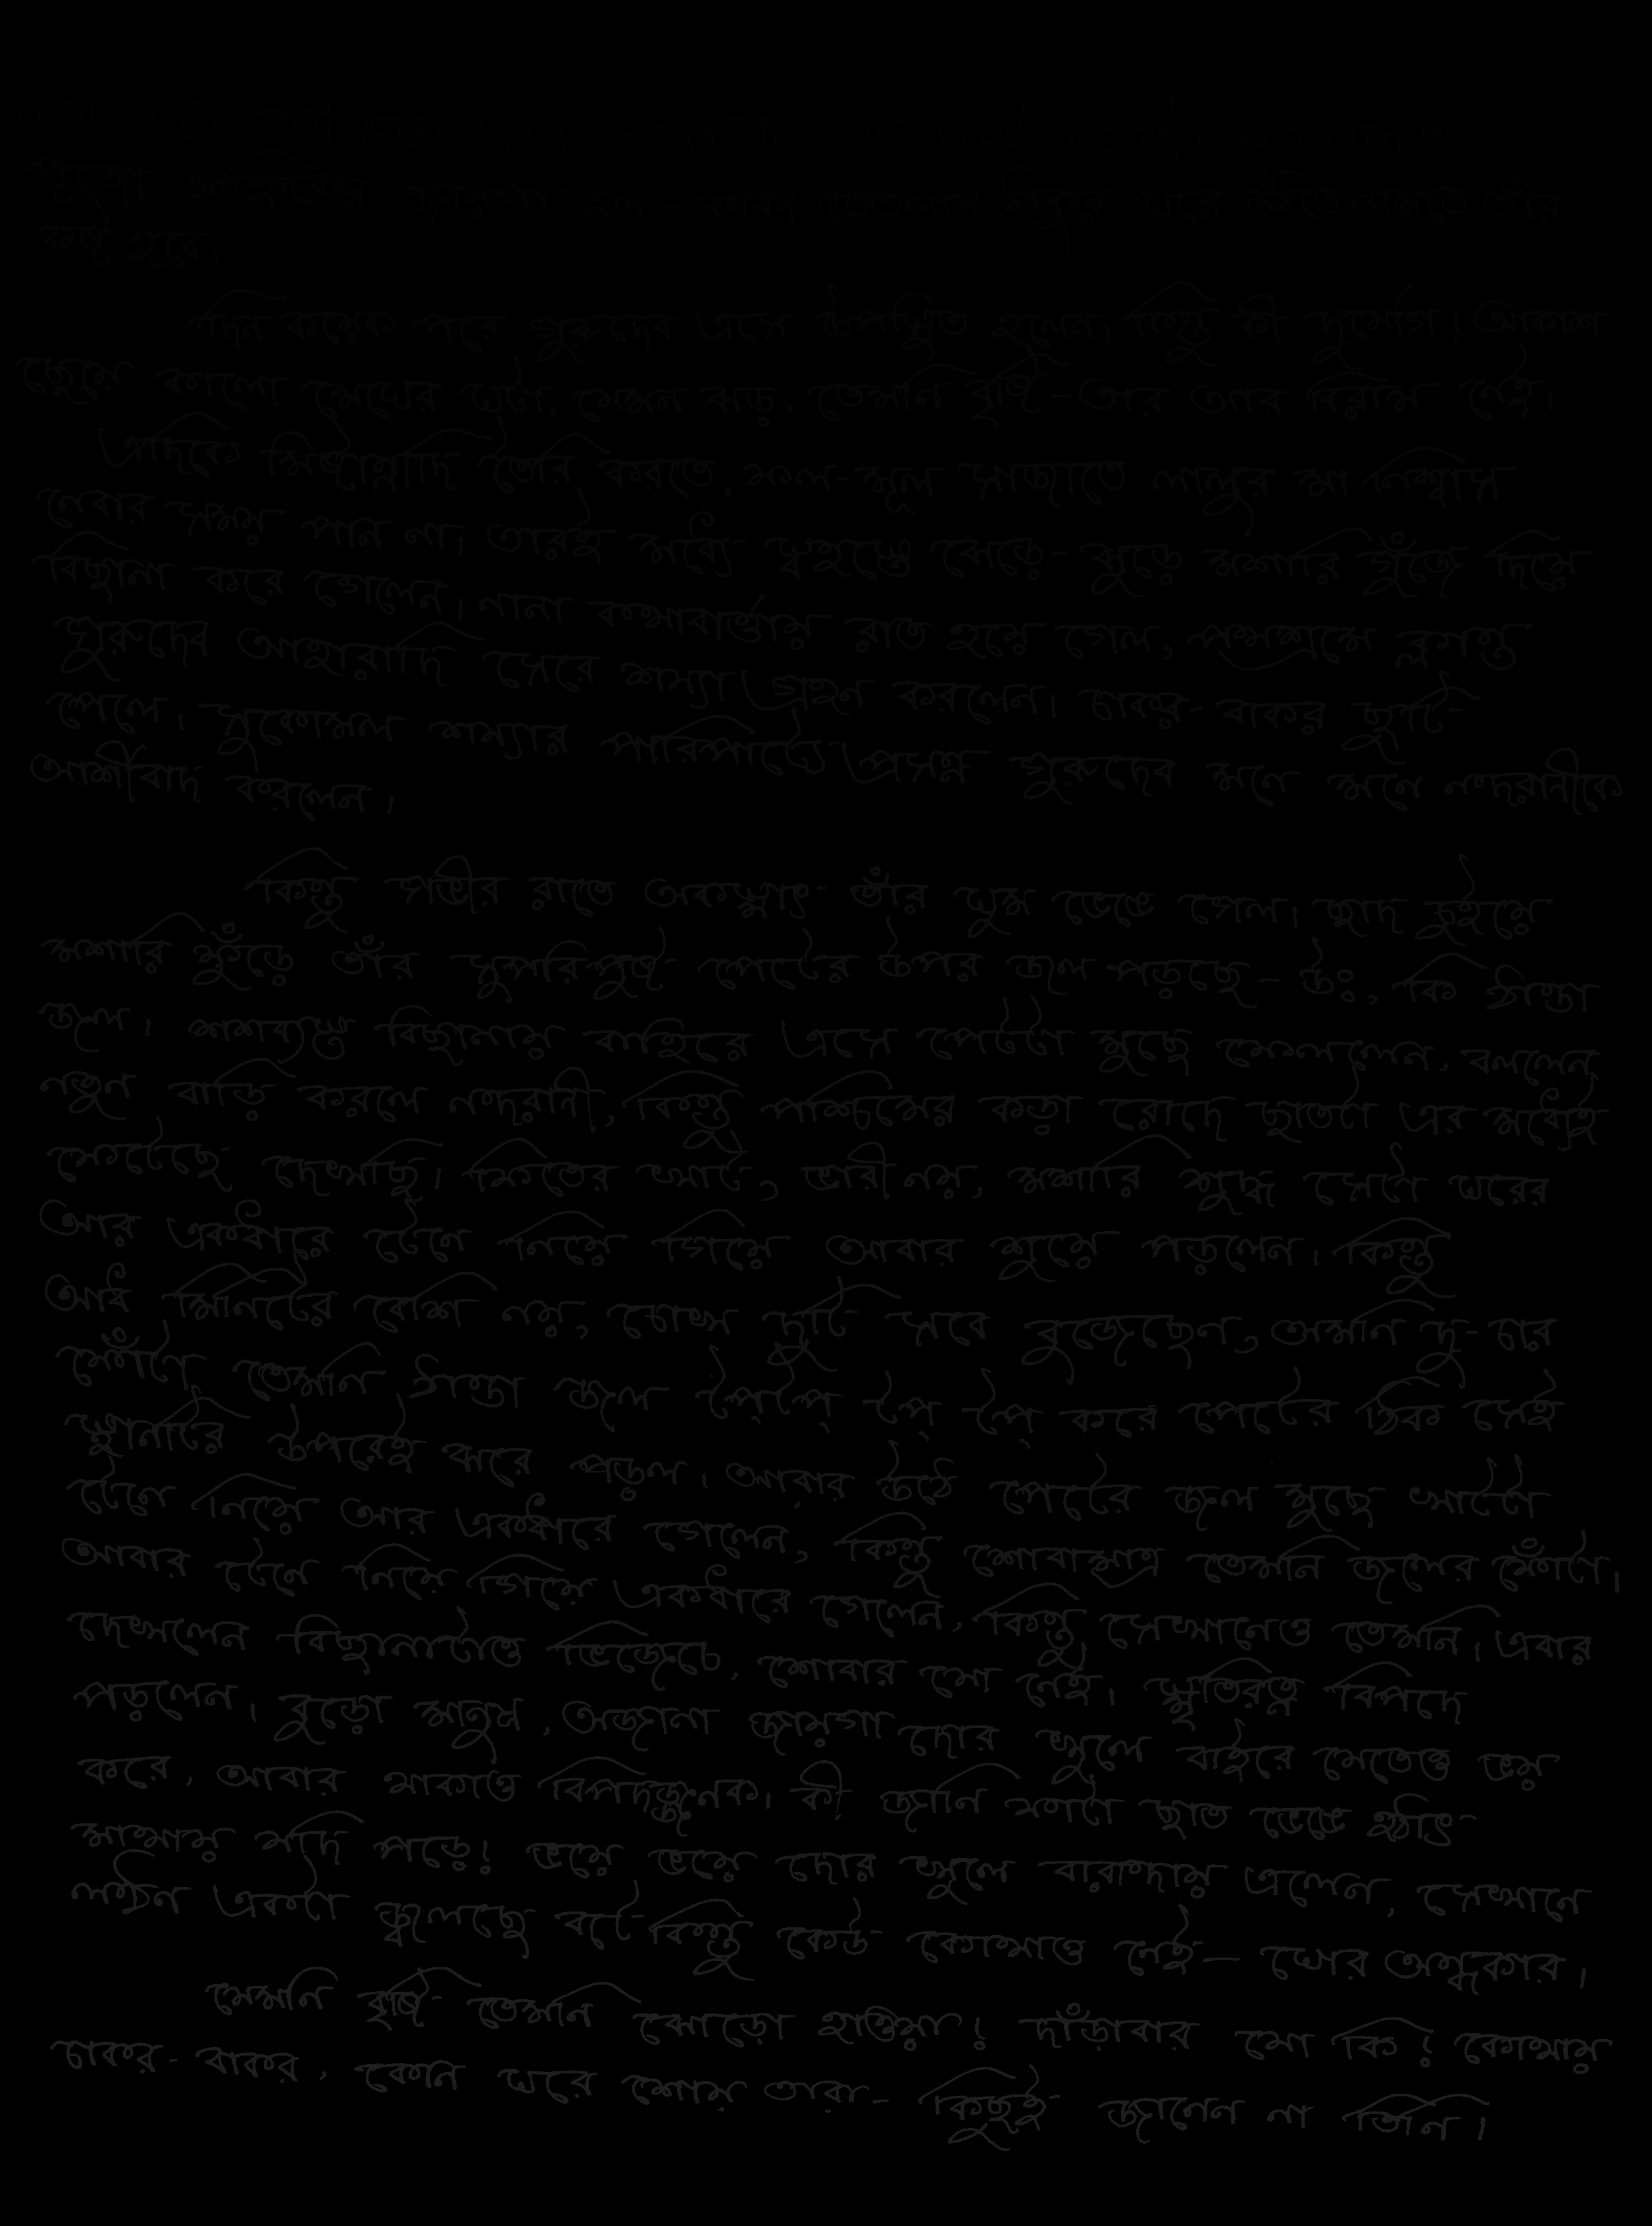 নতুন শয্যা তৈরী হয়ে এলো, – গুরুদেব শোবেন। ঐ ঘরেরই এক কোণে তাঁর
পুজো আহ্নিকের জায়গা হল – কারণ তেতলার ঠাকুর-ঘরে উঠতে নামতে তাঁর
কষ্ট হবে।
দিন কয়েক পরে গুরুদেব এসে উপস্থিত হলেন। কিন্তু কী দুর্যোগ! আকাশ
ছেয়ে কালো মেঘের ঘটা, যেমন ঝড়, তেমনি বৃষ্টি – তার আর বিরাম নেই।
এদিকে মিষ্টান্নাদি তৈরি করতে, ফল-মূল সাজাতে লালুর মা নিশ্বাস
নেবার সময় পান না। তারই মধ্যে স্বহস্তে ঝেড়ে-ঝুড়ে মশারি গুঁজে দিয়ে
বিছানা করে গেলেন। নানা কথাবার্তায় রাত হয়ে গেল, পথশ্রমে ক্লান্ত
গুরুদেব আহারাদি সেরে শয্যা গ্রহণ করলেন। চাকর-বাকর ছুটি
পেলে। সুকোমল শয্যার পারিপাট্যে প্রসন্ন গুরুদেব মনে মনে নন্দরানীকে
আশীর্বাদ করলেন।
কিন্তু গভীর রাতে অকস্মাৎ তাঁর ঘুম ভেঙে গেল। ছাদ চুইয়ে
মশারি ফুঁড়ে তাঁর সুপরিপুষ্ট পেটের উপর জল পড়ছে – উঃ, কি ঠান্ডা
জল। শশব্যস্তে বিছানার বাহিরে এসে পেটটা মুছে ফেললেন, বললেন
নতুন বাড়ি করলে নন্দরানী, কিন্তু পশ্চিমের কড়া রোদে ছাতটা এর মধ্যেই
ফেটেছে দেখছি। ফিতের খাট, ভারী নয়, মশারি শুদ্ধ সেটা ঘরের
আর একধারে টেনে নিয়ে গিয়ে আবার শুয়ে পড়লেন। কিন্তু
আধ মিনিটের বেশি নয়, চোখ দুটি সবে বুজেছেন, অমনি দু-চার
ফোঁটা তেমনি ঠান্ডা জল টপ্‌টপ্‌ টপ্‌ টপ্‌ করে পেটের ঠিক সেই
স্থানটির উপরেই ঝরে পড়ল। আবার উঠে পেটের জল মুছে খাটটা
টেনে নিয়ে আর একধারে গেলেন, কিন্তু শোবামাত্র তেমনি জলের ফোঁটা।
আবার টেনে নিয়ে গিয়ে একধারে গেলেন, কিন্তু সেখানেও তেমনি। এবার
দেখলেন বিছানাটাও ভিজেচে, শোবার যো নেই। স্মৃতিরত্ন বিপদে
পড়লেন। বুড়ো মানুষ, অজানা জায়গা দোর খুলে বাইরে যেতেও ভয়
করে, আবার থাকাও বিপদজ্জনক। কী জানি ফাটা ছাত ভেঙে হঠাৎ
মাথায় যদি পড়ে! ভয়ে ভয়ে দোর খুলে বারান্দায় এলেন, সেখানে
লণ্ঠন একটা জ্বলছে বটে কিন্তু কেউ কোথাও নেই – ঘোর অন্ধকার।
যেমনি বৃষ্টি তেমনি ঝোড়ো হাওয়া! দাঁড়াবার যো কি! কোথায়
চাকর-বাকর, কোন ঘরে শোয় তারা – কিছুই জানেন না তিনি।